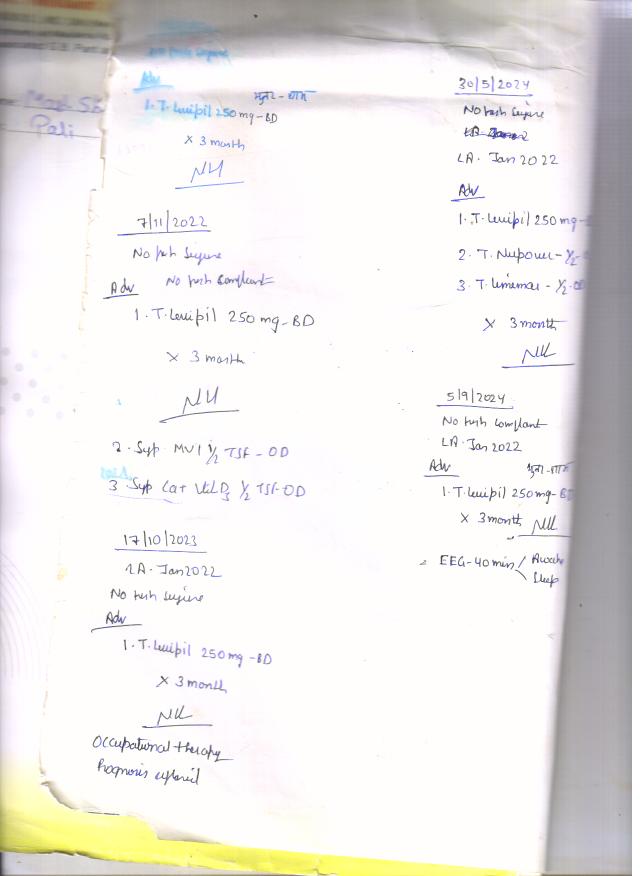 Adv
सुबह - शाम
1. T. Levipil 250 mg - BD
x 3 month
7/11/2022
No fresh Seizure
No fresh Complaint
Adv
1. T. Levipil 250 mg - BD
x 3 month
2. Syp MVI 1/2 TSF - OD
3. Syp Cal D3 1/2 TSF - OD
17/10/2023
LA. Jan 2022
No fresh Seizure
Adv
1. T. Levipil 250 mg - BD
x 3 month
Occupational therapy
Prognosis explained
Pali
30/5/2024
No fresh Seizure
LA. Jan 2022
Adv
1. T. Levipil 250 mg -
2. T. Nupower - 1/2 -
3. T. - 1/2 - OD
x 3 month
5/9/2024
No fresh Complaint
LA. Jan 2022
Adv
सुबह - शाम
1. T. Levipil 250 mg - BD
x 3 month
EEG - 40 min / Awake
Sleep